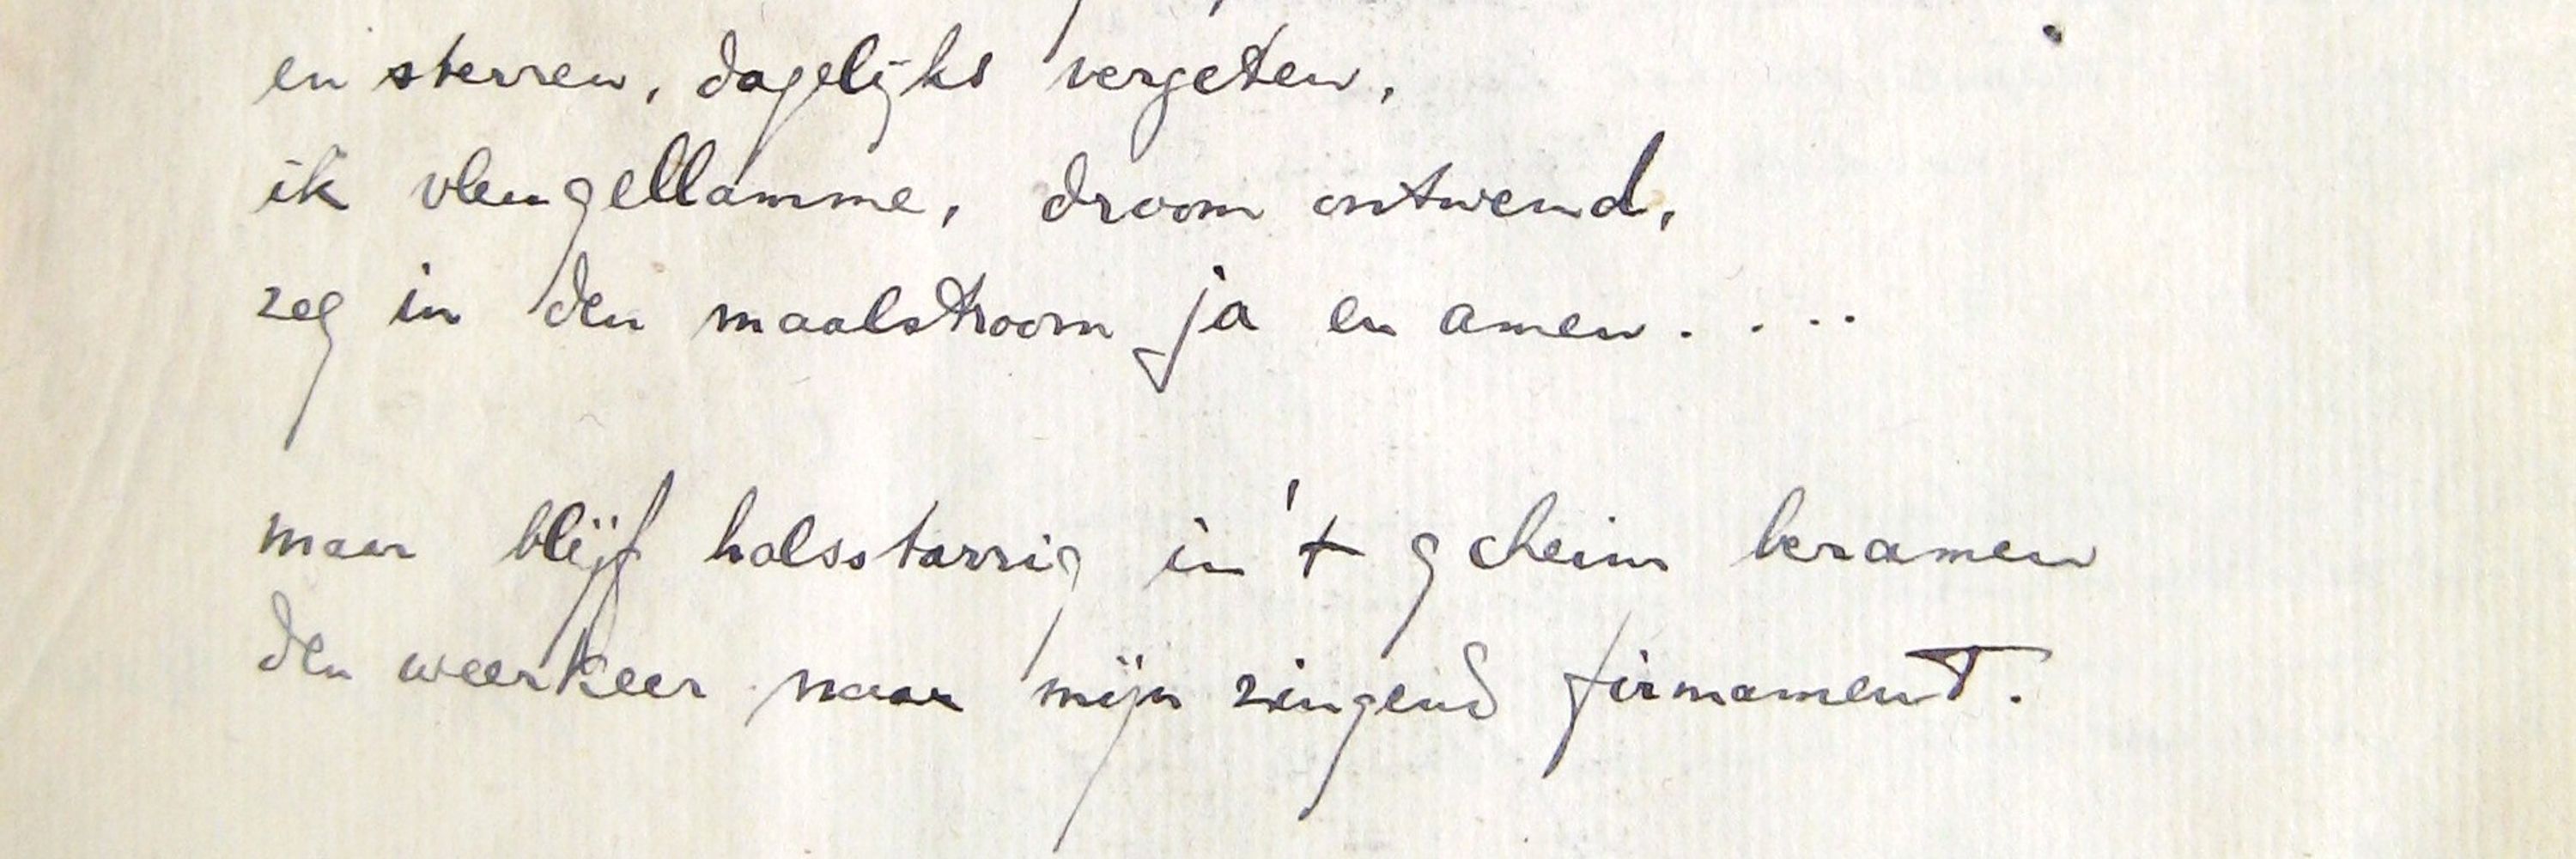 en sterren, dagelijks vergeten,
ik vleugellamme, droom ontwend,
zeg in den maalstroom ja en amen....
maar blijf halsstarrig in 't geheim beramen
den weerkeer naar mijn zingend firmament.